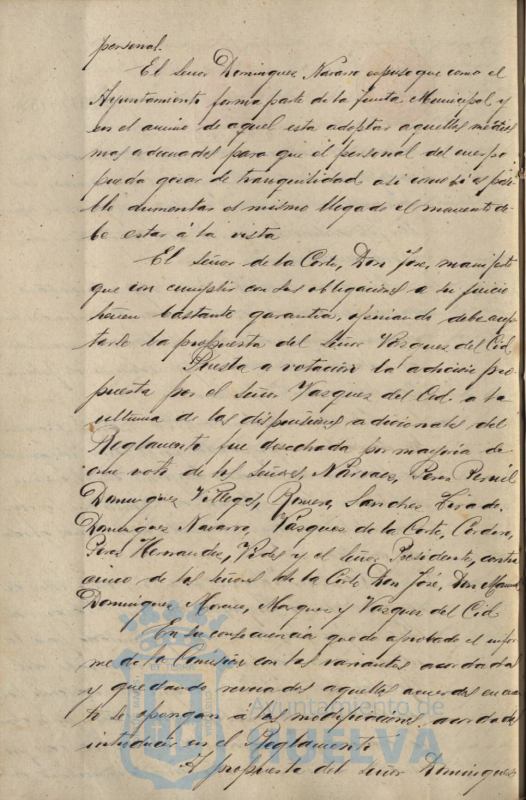 personal.
El Señor Dominguez Navarro expuso que como el
Ayuntamiento forma parte de la Junta Municipal y
en el animo de aquel esta adoptar aquellas medidas
mas adecuadas para que el personal del cuerpo
pueda gozar de tranquilidad asi como si es posi-
ble aumentar el mismo llegado el momento de-
be estar á la vista
El Señor de la Corte, Don José, manifestó
que con cumplir con sus obligaciones a su juicio
tienen bastante garantia, opinando debe acep-
tarse la propuesta del Señor Vazquez del Cid.
Puesta a votación la adición pro-
puesta por el Señor Vazquez del Cid a la
ultima de las disposiciones adicionales del
Reglamento fue desechada por mayoria de
once votos de los Señores, Narvaez, Perez
Dominguez Villegas, Romero, Sanchez
Dominguez Navarro, Vazquez de la Corte, Cordero,
Perez Hernandez, y el Señor Presidente, contra
cinco de los Señores de la Corte Don José, Don Manuel
Dominguez, Moreno, Marquez y Vazquez del Cid
En su consecuencia quedo aprobado el infor-
me de la Comisión con las variantes acordadas
y quedando revocados aquellos acuerdos en cuan-
to se opongan á las modificaciones acordadas
introducir en el Reglamento
A propuesta del Señor Dominguez
Ayuntamiento de
HUELVA